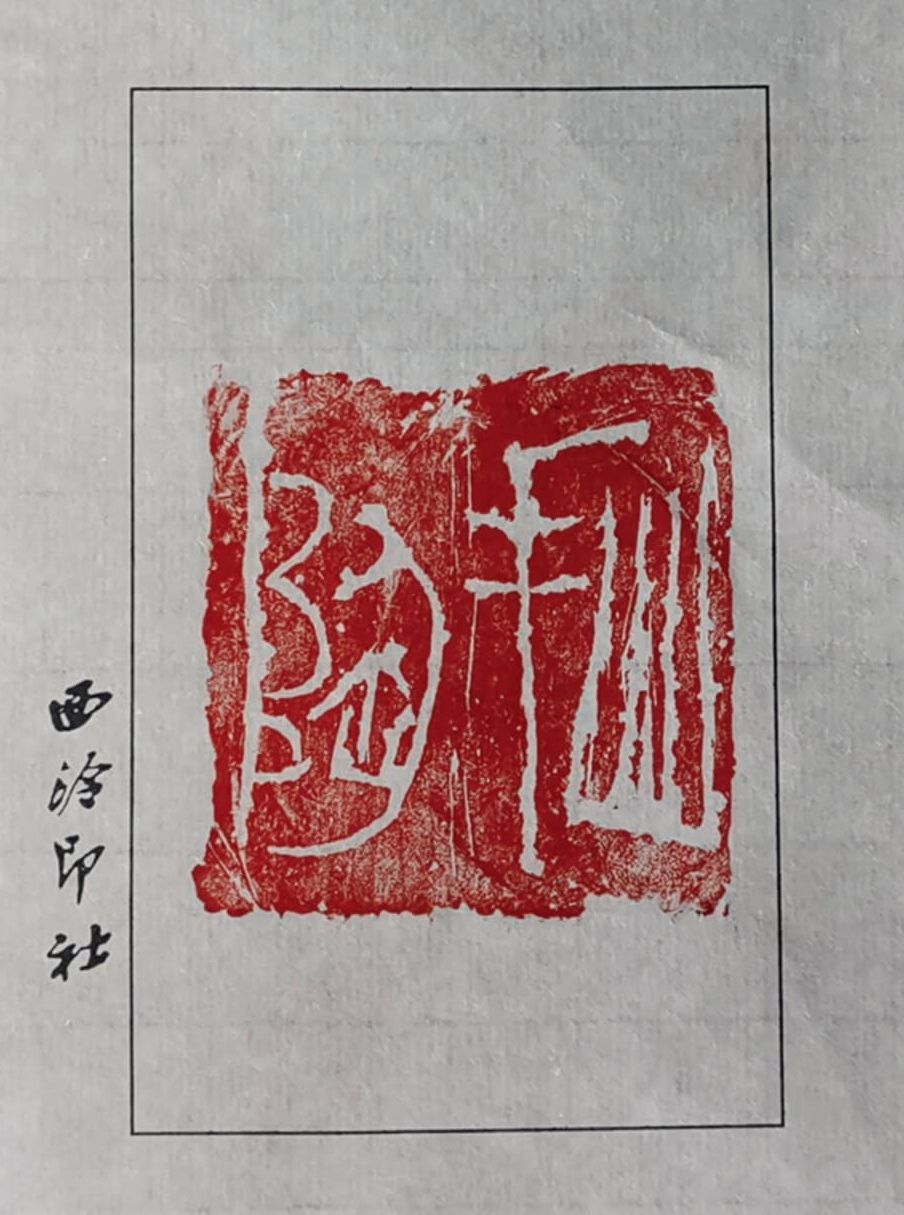 陶
西泠印社